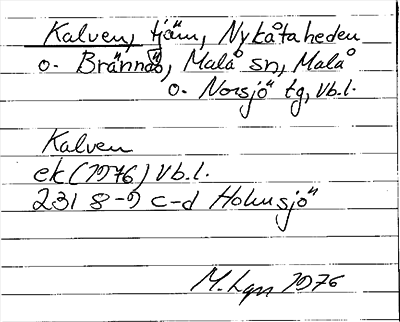 Kalven, tjärn, Nykåtaheden
o. Brännäs, Malå sn, Malå
o. Norsjö tg, Vb.l.
Kalven
ek (1976) Vb.l.
231 8-9 c-d Holmsjö
M. Lgn 1976